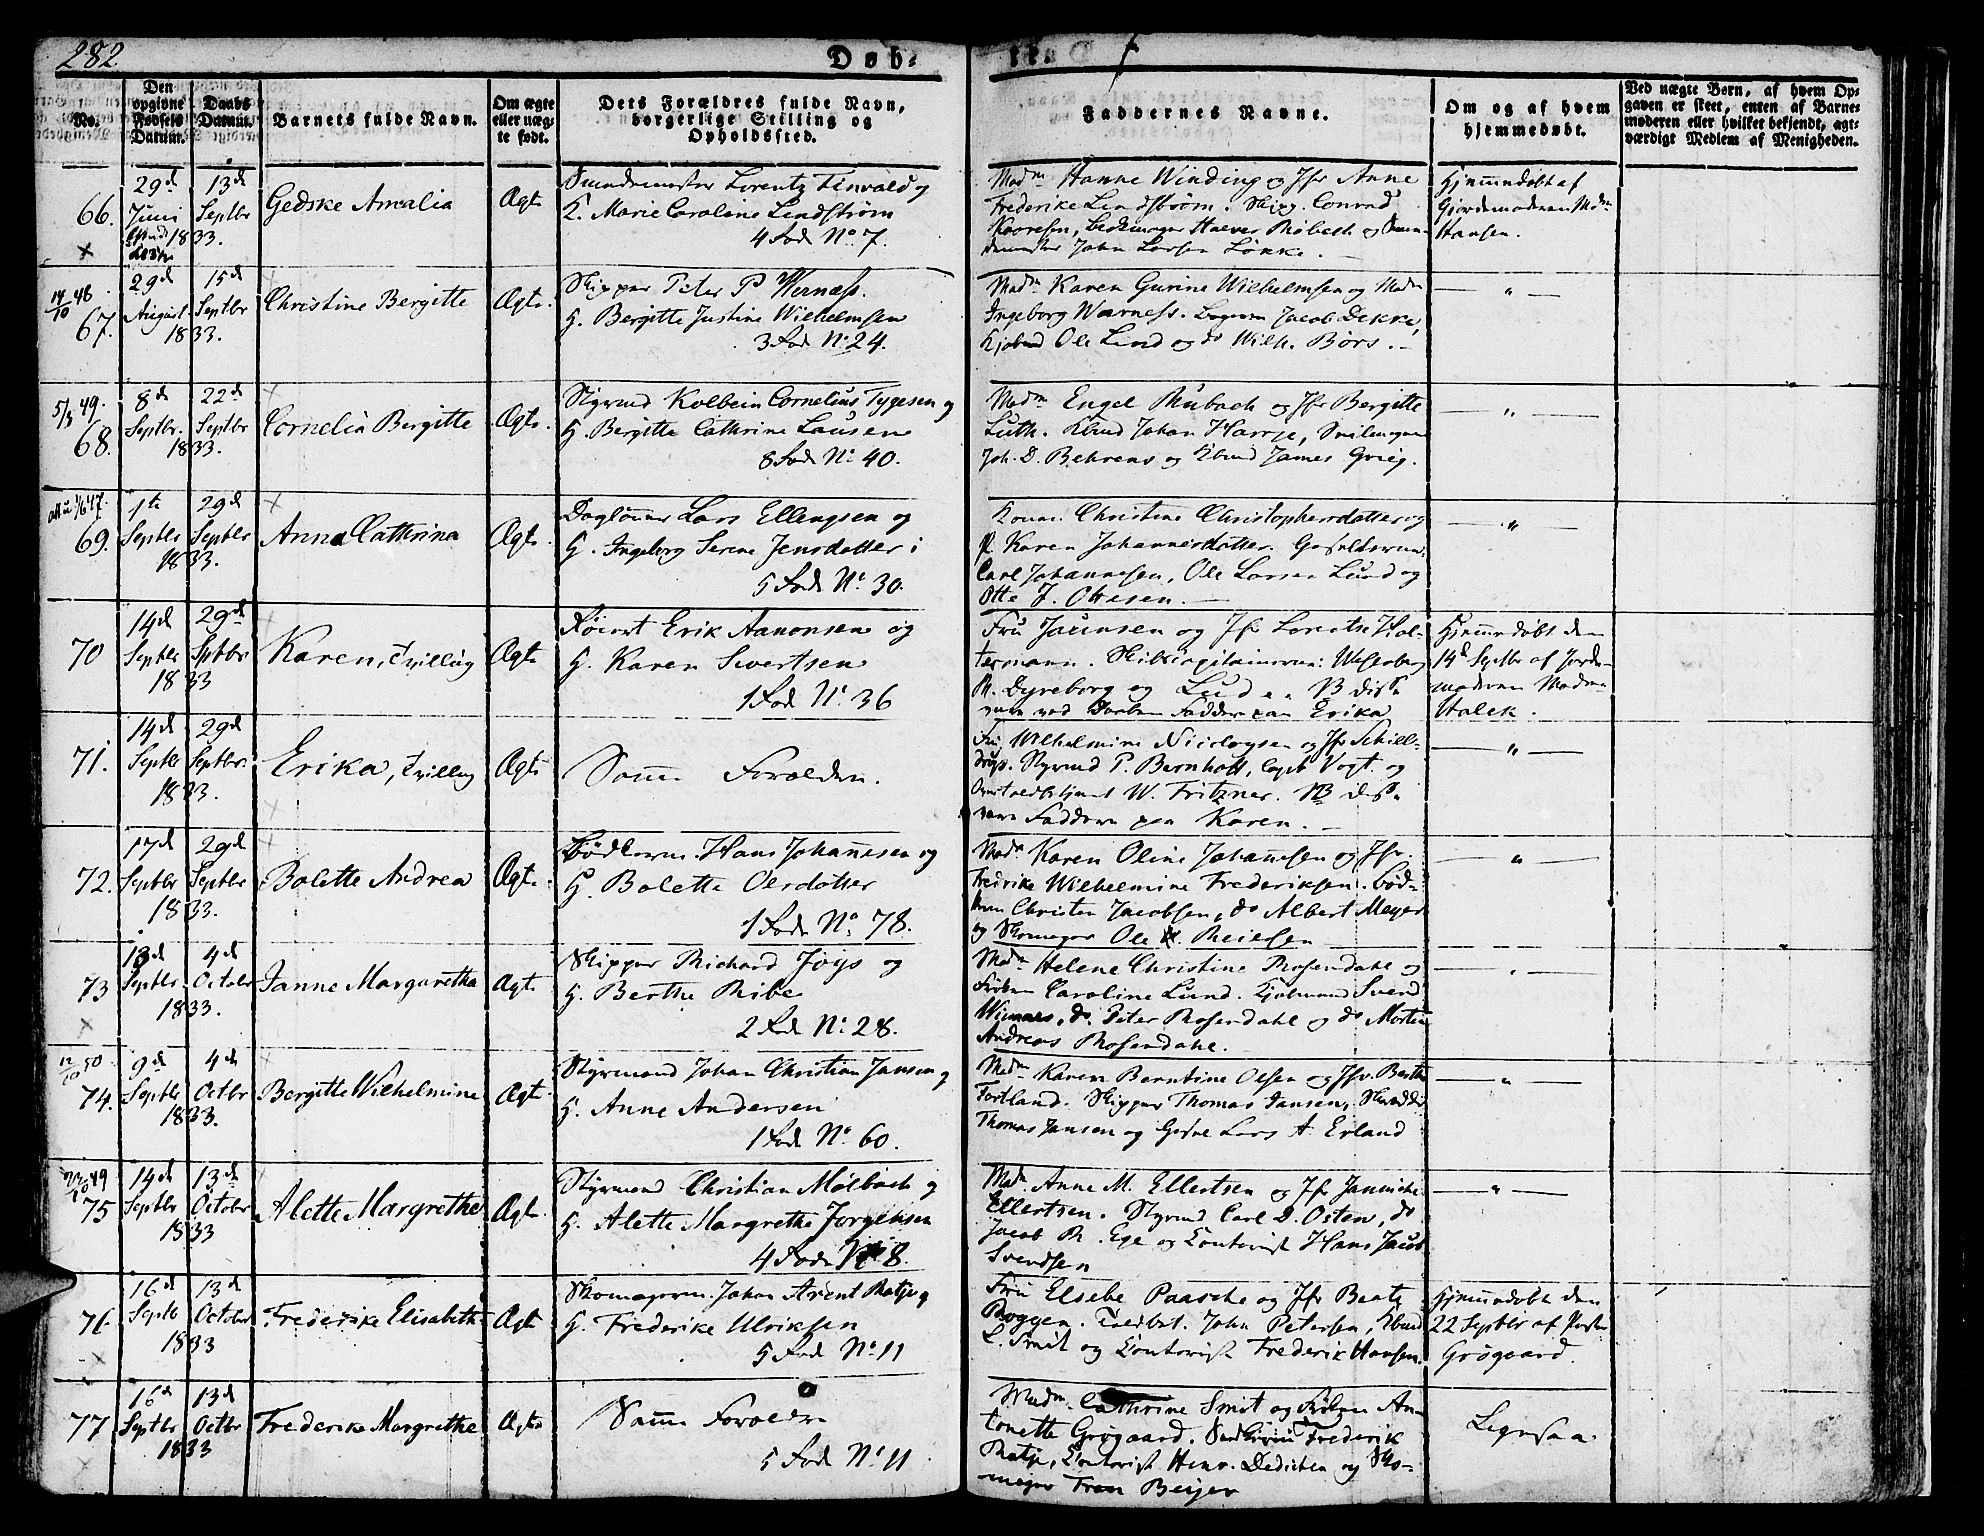 282.
Døb-
te.
No.
Den opgivne Fødsels Datum.
Daabs Datum.
Barnets fulde Navn.
Om ægte eller uægte født.
Dets Forældres fulde Navn, borgerlige Stilling og Opholdssted.
Faddernes Navne.
Om og af hvem hjemmedøbt.
Ved uægte Børn, af hvem Opgaven er skeet, enten af Barnemoderen eller hvilket bekjendt, agtværdigt Medlem af Menigheden.
66.
29d Juni 1833.
13d Septbr
Gedske Amalia
Ægte
Lorentz Tenvald og
H. Marie Caroline Lindstrøm
4 Rode No. 7.
Madm Hanne Winding og Jfr Anne
Frederike Lindstrøm. Skipp. Conrad
John Larsen Løkke.
Hjemmedøbt af
Gjordemoderen Mdm
Hansen.
14/10 48.
67.
29d August 1833.
15d Septbr
Christine Bergitte
Ægte.
Skipper Peter P Wernæss.
H. Bergitte Justine Wilhelmsen
3 Rode No. 24.
Madm Karen Gurine Wilhelmsen og Madm
Ingeborg Warness. Jacob Dekke,
Kjøbmd Ole Lind og do Wilh. Børs.
— " —
5/3 49.
68.
8de Septbr. 1833.
22d Septbr
Cornelia Bergitte
Ægte.
Styrmd Kolbein Cornelius Tygesen og
H. Bergitte Cathrine Lausen
8 Rode No. 40.
Madm Engel Rubach og Jfr Bergitte
Luth. Kbmd Johan Harrje,
Joh. D. Behrens og Kbmd James Grieg.
— " —
69.
1te Septbr 1833.
29d Septbr
Anna Cathrina
Ægte.
Dagløner Lars Ellingsen og
H. Ingeborg Serene Jensdatter i
5 Rode No. 30.
Konen Christine Christophersdatter og
P. Karen Johannesdatter.
Carl Johannesen, Ole Larsen Lund og
Otte J. Ottesen.
— " —
70
14d Septbr 1833
29d Sptbr.
Karen, Tvilling
Ægte
Erik Aanonsen og
H. Karen Sivertsen
1 Rode No. 36
Fru Jansen og Jfr
termann.
R. Dyreborg og Lund NB disse
vare ved Daaben Faddere paa Erika
Hjemmedøbt den
14d Septbr af Jorde-
moderen Madm
71.
14d Septbr 1833.
29d Septbr.
Erika, Tvilling
Ægte
Samme Forældre.
Fru Wilhelmine Nicolaysen og Jfr
Styrmd P. Bernhoft, Capt Vogt. og
W. Fritzner. NB disse
vare Faddere paa Karen.
— " —
72.
17d Septbr 1833.
29d Septbr
Bolette Andrea
Ægte.
Bødkersv. Hans Johannesen og
H. Bolette Olsdatter
1 Rode No. 78.
Madm Karen Oline Johannesen og Jfr.
Fredrike Wilhelmine Frederiksen. Bød-
kern Christen Jacobsen, do Albert Meyer
og Skomager Ole Reiersen
— " —
73
13d Septbr 1833.
4d October
Janne Margaretha
Ægte
Skipper Richard Joys og
H. Berthe Ribe
2 Rode No. 28.
Madm Helene Christine Rosendahl og
Frøken Caroline Lund. Kjøbmand Svend
Wiernæs, do. Peter Rosendahl og do Morten
Andreas Rosendahl.
— " —
12/10 50.
74.
9d Septbr 1833.
4d Octbr
Bergitte Wilhelmine
Ægte
Styrmand Johan Christian Jansen og
H. Anne Andersen
1 Rode No. 60.
Madm Karen Berntine Olsen og Jfr Berthe
Fortland. Skipper Thomas Jansen, Skrædder
Thomas Jansen og Lars A. Erland
— " —
49
75
14d Septbr 1833
13d October
Alette Margrethe
Ægte.
Styrmand Christian Mølbach og
H. Alette Margrethe Jørgensen
4 Rode No. 8.
Madm. Anne M. Ellertsen og Jfr Jannicke
Ellertsen. Styrmd Carl D. Osten, do
Jacob R. Ege og Contorist Hans Jacob
Svendsen
— " —
76.
16d Septb 1833
13d October
Frederike Elisabeth
Ægte
Skomagersv. Johan Arent Ratje og
H. Frederike Ulriksen
5 Rode No. 11
Fru Elsebe Paasche og Jfr Beate
Roggen. Toldbet. John Petersen, Kbmd
L. Smit og Contorist Frederik Hansen.
Hjemmedøbt den
22 Septbr af Præsten
Grøgaard.
77
16d Septbr 1833
13d Octbr
Frederike Margrethe
Ægte
Samme Forældre
5 Rode No. 11
Madm. Cathrine Smit og Frøken An-
tonette Grøgaard. Frederik
Ratje, Contorist Henr. Dedichen og Sko-
mager Beyer
Ligesaa.